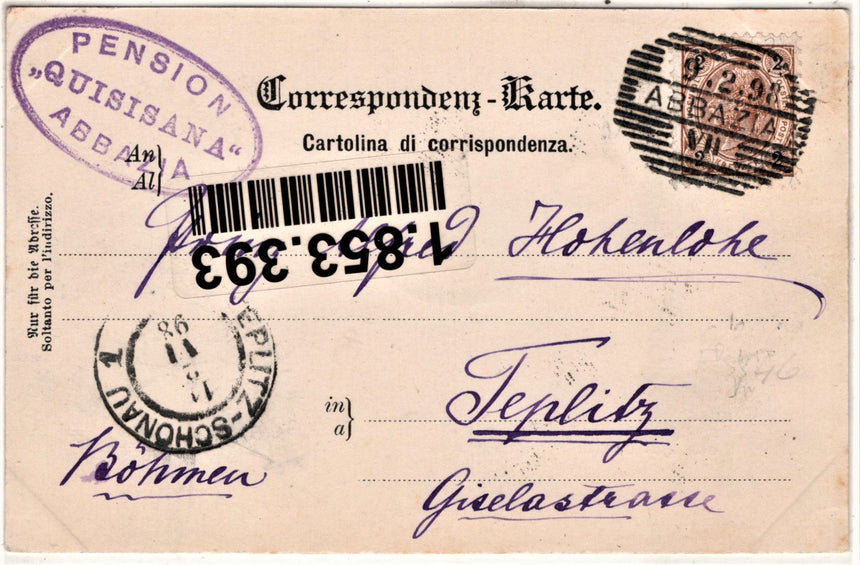 PENSION
„QUISISANA“
ABBAZIA
Correspondenz-Karte.
Cartolina di corrispondenza.
9.2.98
ABBAZIA
2 2
2 2
An
Al
1.853.393
Hohenlohe
Nur für die Adresse.
Soltanto per l'indirizzo.
TEPLITZ-SCHÖNAU 1
98
11
in
a
Teplitz
Böhmen
Giselastrasse